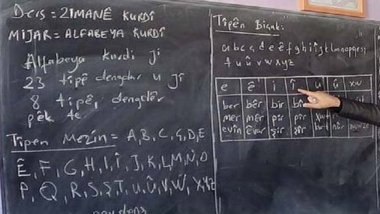 Ders = ZIMANÊ KURDÎ
MIJAR = ALFABEYA KURDÎ
Alfabeya kurdi ji
23 tîpê dengdar u ji
8 tîpê, dengdêr
pêk tê
Tîpên Mezin = A, B, C, Ç, D, E
Ê, F, G, H, I, Î, J, K, L, M, N, O
P, Q, R, S, Ş, T, U, Û, V, W, X, Y, Z
Tîpên Biçuk:
a b c ç d e ê f g h i î j k l m n o p q r s ş
t u û v w x y z
e ê i î u û xw
ber bêr bir bîr
mer mêr pir pîr
evin êvar